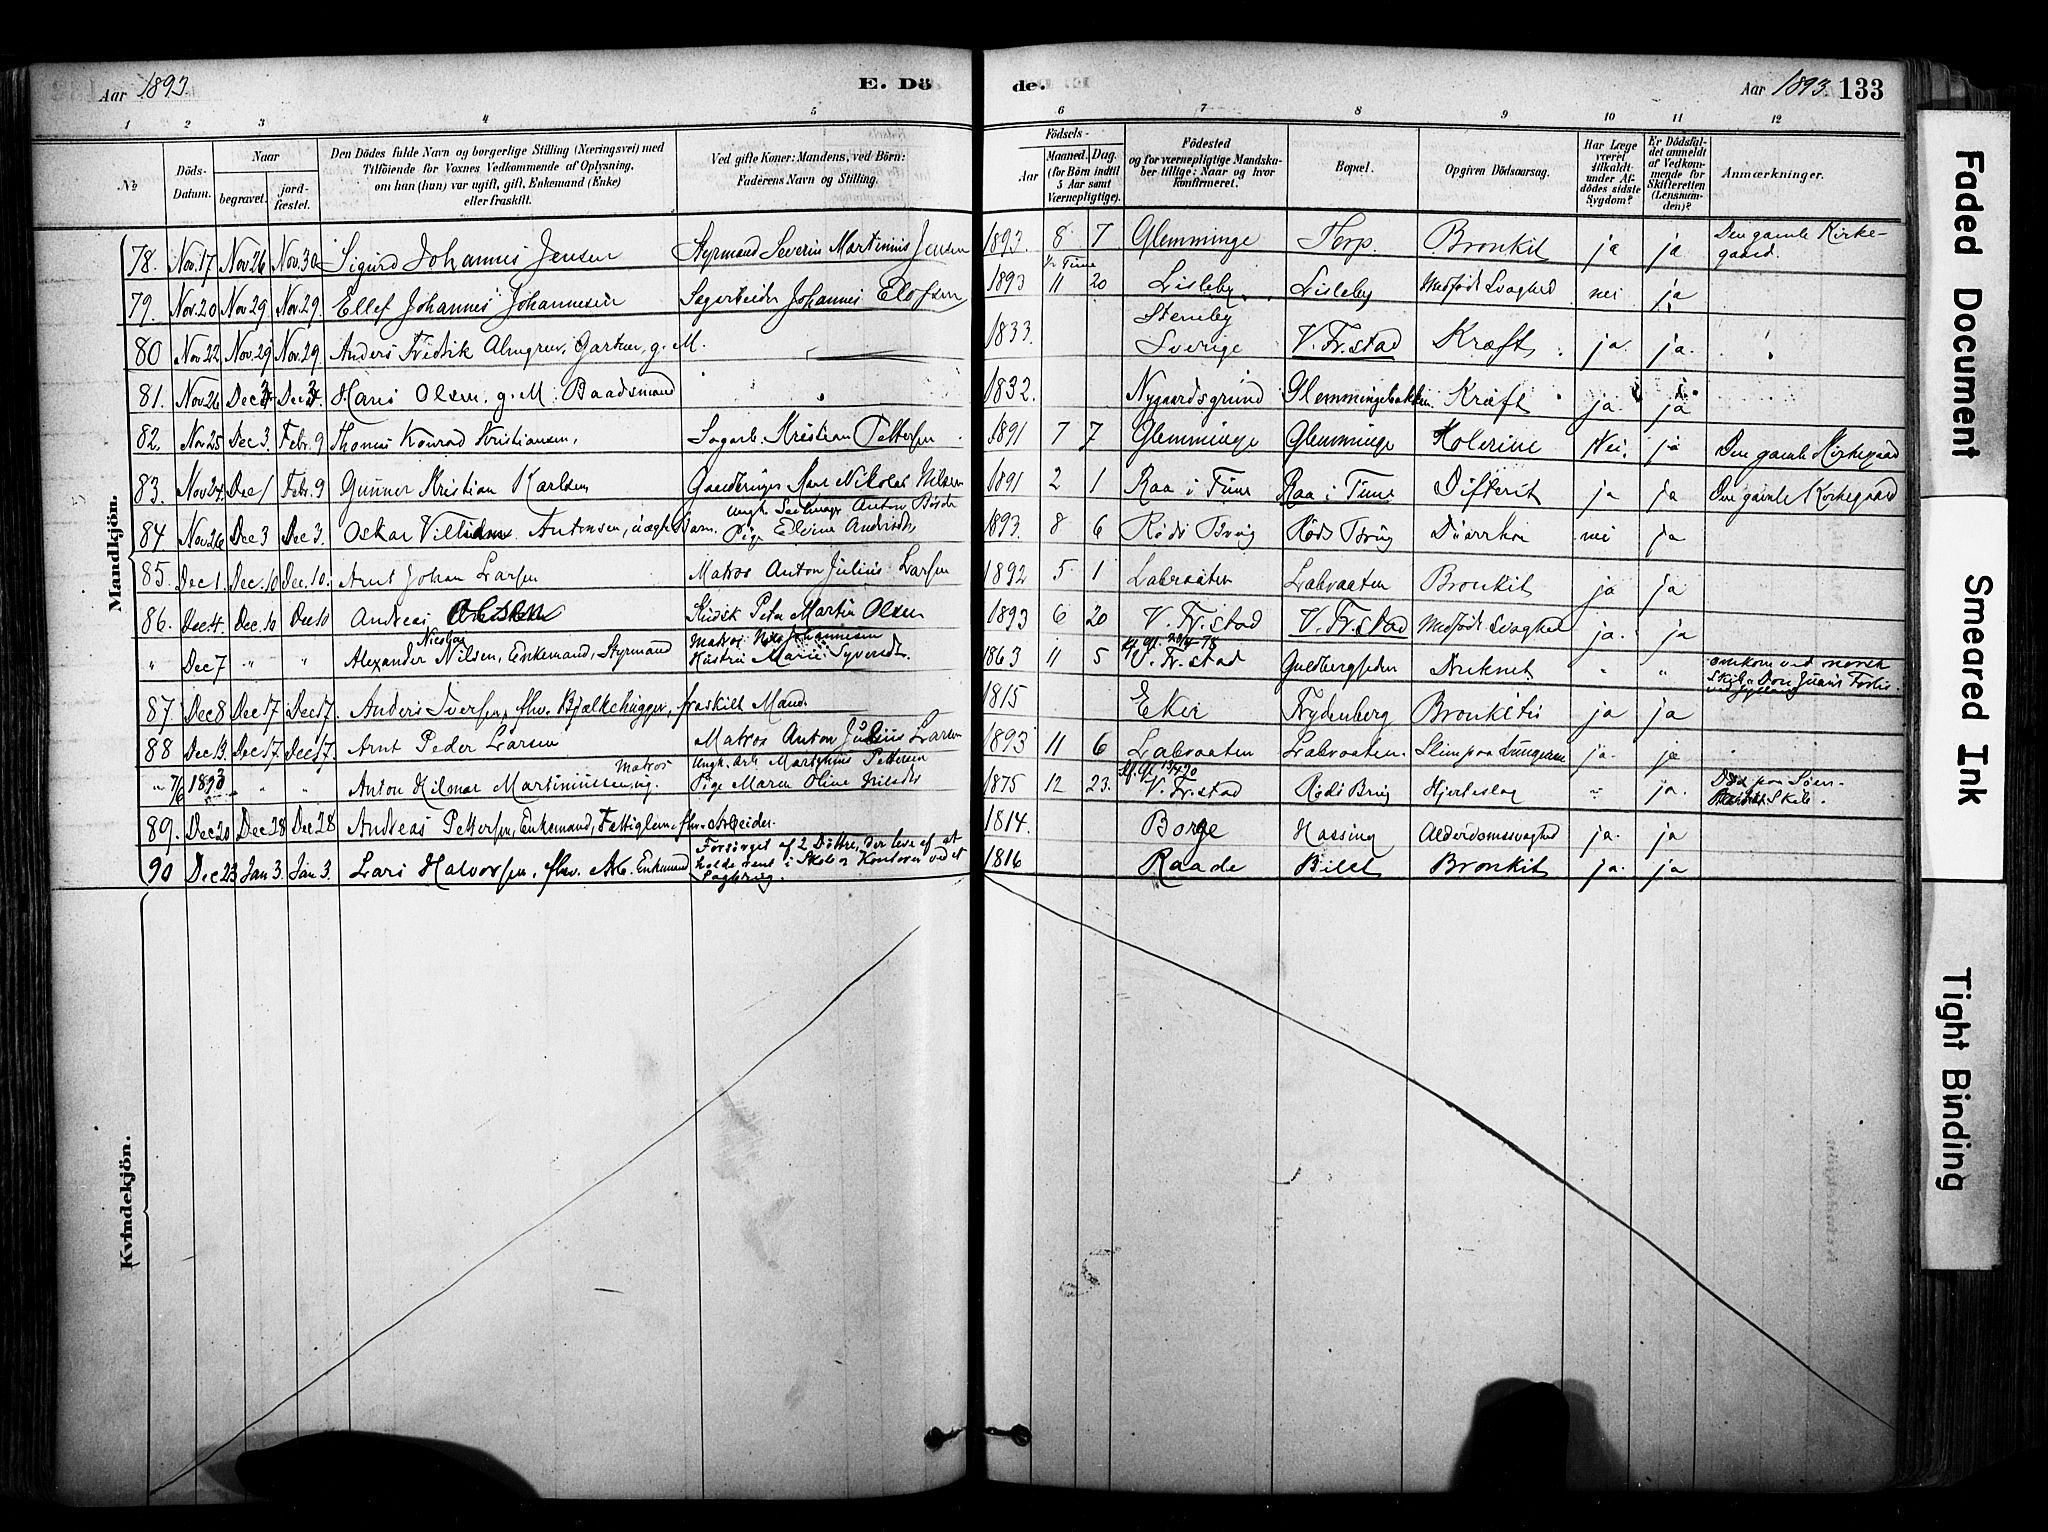 Aar 1893. E. Dö
de. Aar 1893. 133
1 2 3 4 5 6 7 8 9 10 11 12
№
Döds-Datum.
Naar
begravet.
jord-fæstet.
Den Dödes fulde Navn og borgerlige Stilling (Næringsvei) med
Tilföiende for Voxnes Vedkommende af Oplysning,
om han (hun) var ugift, gift, Enkemand (Enke)
eller fraskilt.
Ved gifte Koner: Mandens, ved Börn:
Faderens Navn og Stilling.
Födsels-
Aar
Maaned. Dag.
(for Börn indtil
5 Aar samt
Værnepligtige).
Födested
og for værnepligtige Mandska-
ber tillige: Naar og hvor
konfirmeret.
Bopæl.
Opgiven Dödsaarsag.
Har Læge
været
tilkaldt
under Af-
dödes sidste
Sygdom?
Er Dödsfal-
det anmeldt
af Vedkom-
mende for
Skifteretten
(Lensman-
den)?
Anmærkninger.
Mandkjön.
78. Nov. 17 Nov 26 Nov. 30 Sigurd Johannes Jensen Styrmand Severin Martinius Jensen 1893. 8 7 Glemminge Torp. Bronkit ja ja Den gamle Kirke-
gaard.
79. Nov. 20 Nov 29 Nov. 29 Ellef Johannes Johannesen Sagarbeider Johannes Elofsen 1893 11 20 Lisleby Lisleby Medfödt Svaghed nei ja
80 Nov 22 Nov. 29 Nov. 29 Anders Fredrik Almgren, Gartner, g. M. 1833. Steneby
Sverige V. Fr. stad Kræft ja. ja.
81. Nov 26 Dec 3 Dec 3. Hans Olsen. g. M. Baadsmand 1832. Nygaardsgrund Glemmingebakken Kræft ja ja
82. Nov 25 Dec 3 Febr. 9 Thomas Konrad Kristiansen, Sagarb. Kristian Pettersen 1891 7 7 Glemminge Glemminge Kolerine Nei. ja Den gamle Kirkegaard
83. Nov 24. Dec 1 Febr. 9 Gunner Kristian Karlsen Nikolai Nilsen 1891 2 1 Raa i Tune Raa i Tune Difterit ja ja Den gamle Kirkegaard
84 Nov 26 Dec 3 Dec 3. Oskar Villiam Antonsen, uægte Barn. Ungk. Anton
Pige Elvine Andersdtr. 1893. 8 6 Röds Brug Röds Brug Diarrhoe nei ja
85. Dec 1. Dec. 10 Dec. 10. Arnt Johan Larsen Matros Anton Julius Larsen 1892 5 1 Labraaten Labraaten Bronkit ja ja
86. Dec. 4 Dec. 10 Dec 10 Andreas Olsen Kudsk Peter Martin Olsen 1893 6 20 V. Fr. stad V. Fr. stad Medfödt Svaghed ja. ja
" Dec 7 " " Alexander Nicolay Nilsen, Enkemand, Styrmand Matros Nils Johannesen
Hustru Marie Syversdtr. 1863 11 5 V. Fr. stad Guldbergseden Druknet " " omkom ved norsk
Skib "Don Juan"
87 Dec 8 Dec 17 Dec 17. Anders Iversen, fhv. Bjælkehugger, fraskilt Mand. 1815 Eker Frydenberg Bronkitis ja ja
88 Dec 13 Dec 17. Dec 17. Arnt Peder Larsen Matros Anton Julius Larsen 1893 11 6 Labraaten Labraaten. Slim paa Lungerne ja. ja
" 7/6 1893 " " Anton Hilmar Martiniussen, ug. Matros Ungk. Arb. Martinius Pettersen
Pige Maren Oline Nilsdtr 1875 12 23. V. Fr. stad Röds Brug Hjerteslag " ja. Död paa Söen
Skib.
89. Dec 20 Dec 28 Dec 28 Andreas Pettersen, Enkemand, Fattiglem, fhv. Arbeider. 1814. Borge Hassing Alderdomssvaghed ja. ja
90 Dec 23 Jan 3. Jan 3. Lars Halvorsen, fhv. Arb. Enkemand Forsörget af 2 Döttre, der leve af at
holde rent i Skole & Kontorer ved et
Sagbrug. 1816 Raade Bilet Bronkit ja. ja
Kvindekjön.
Faded Document
Smeared Ink
Tight Binding